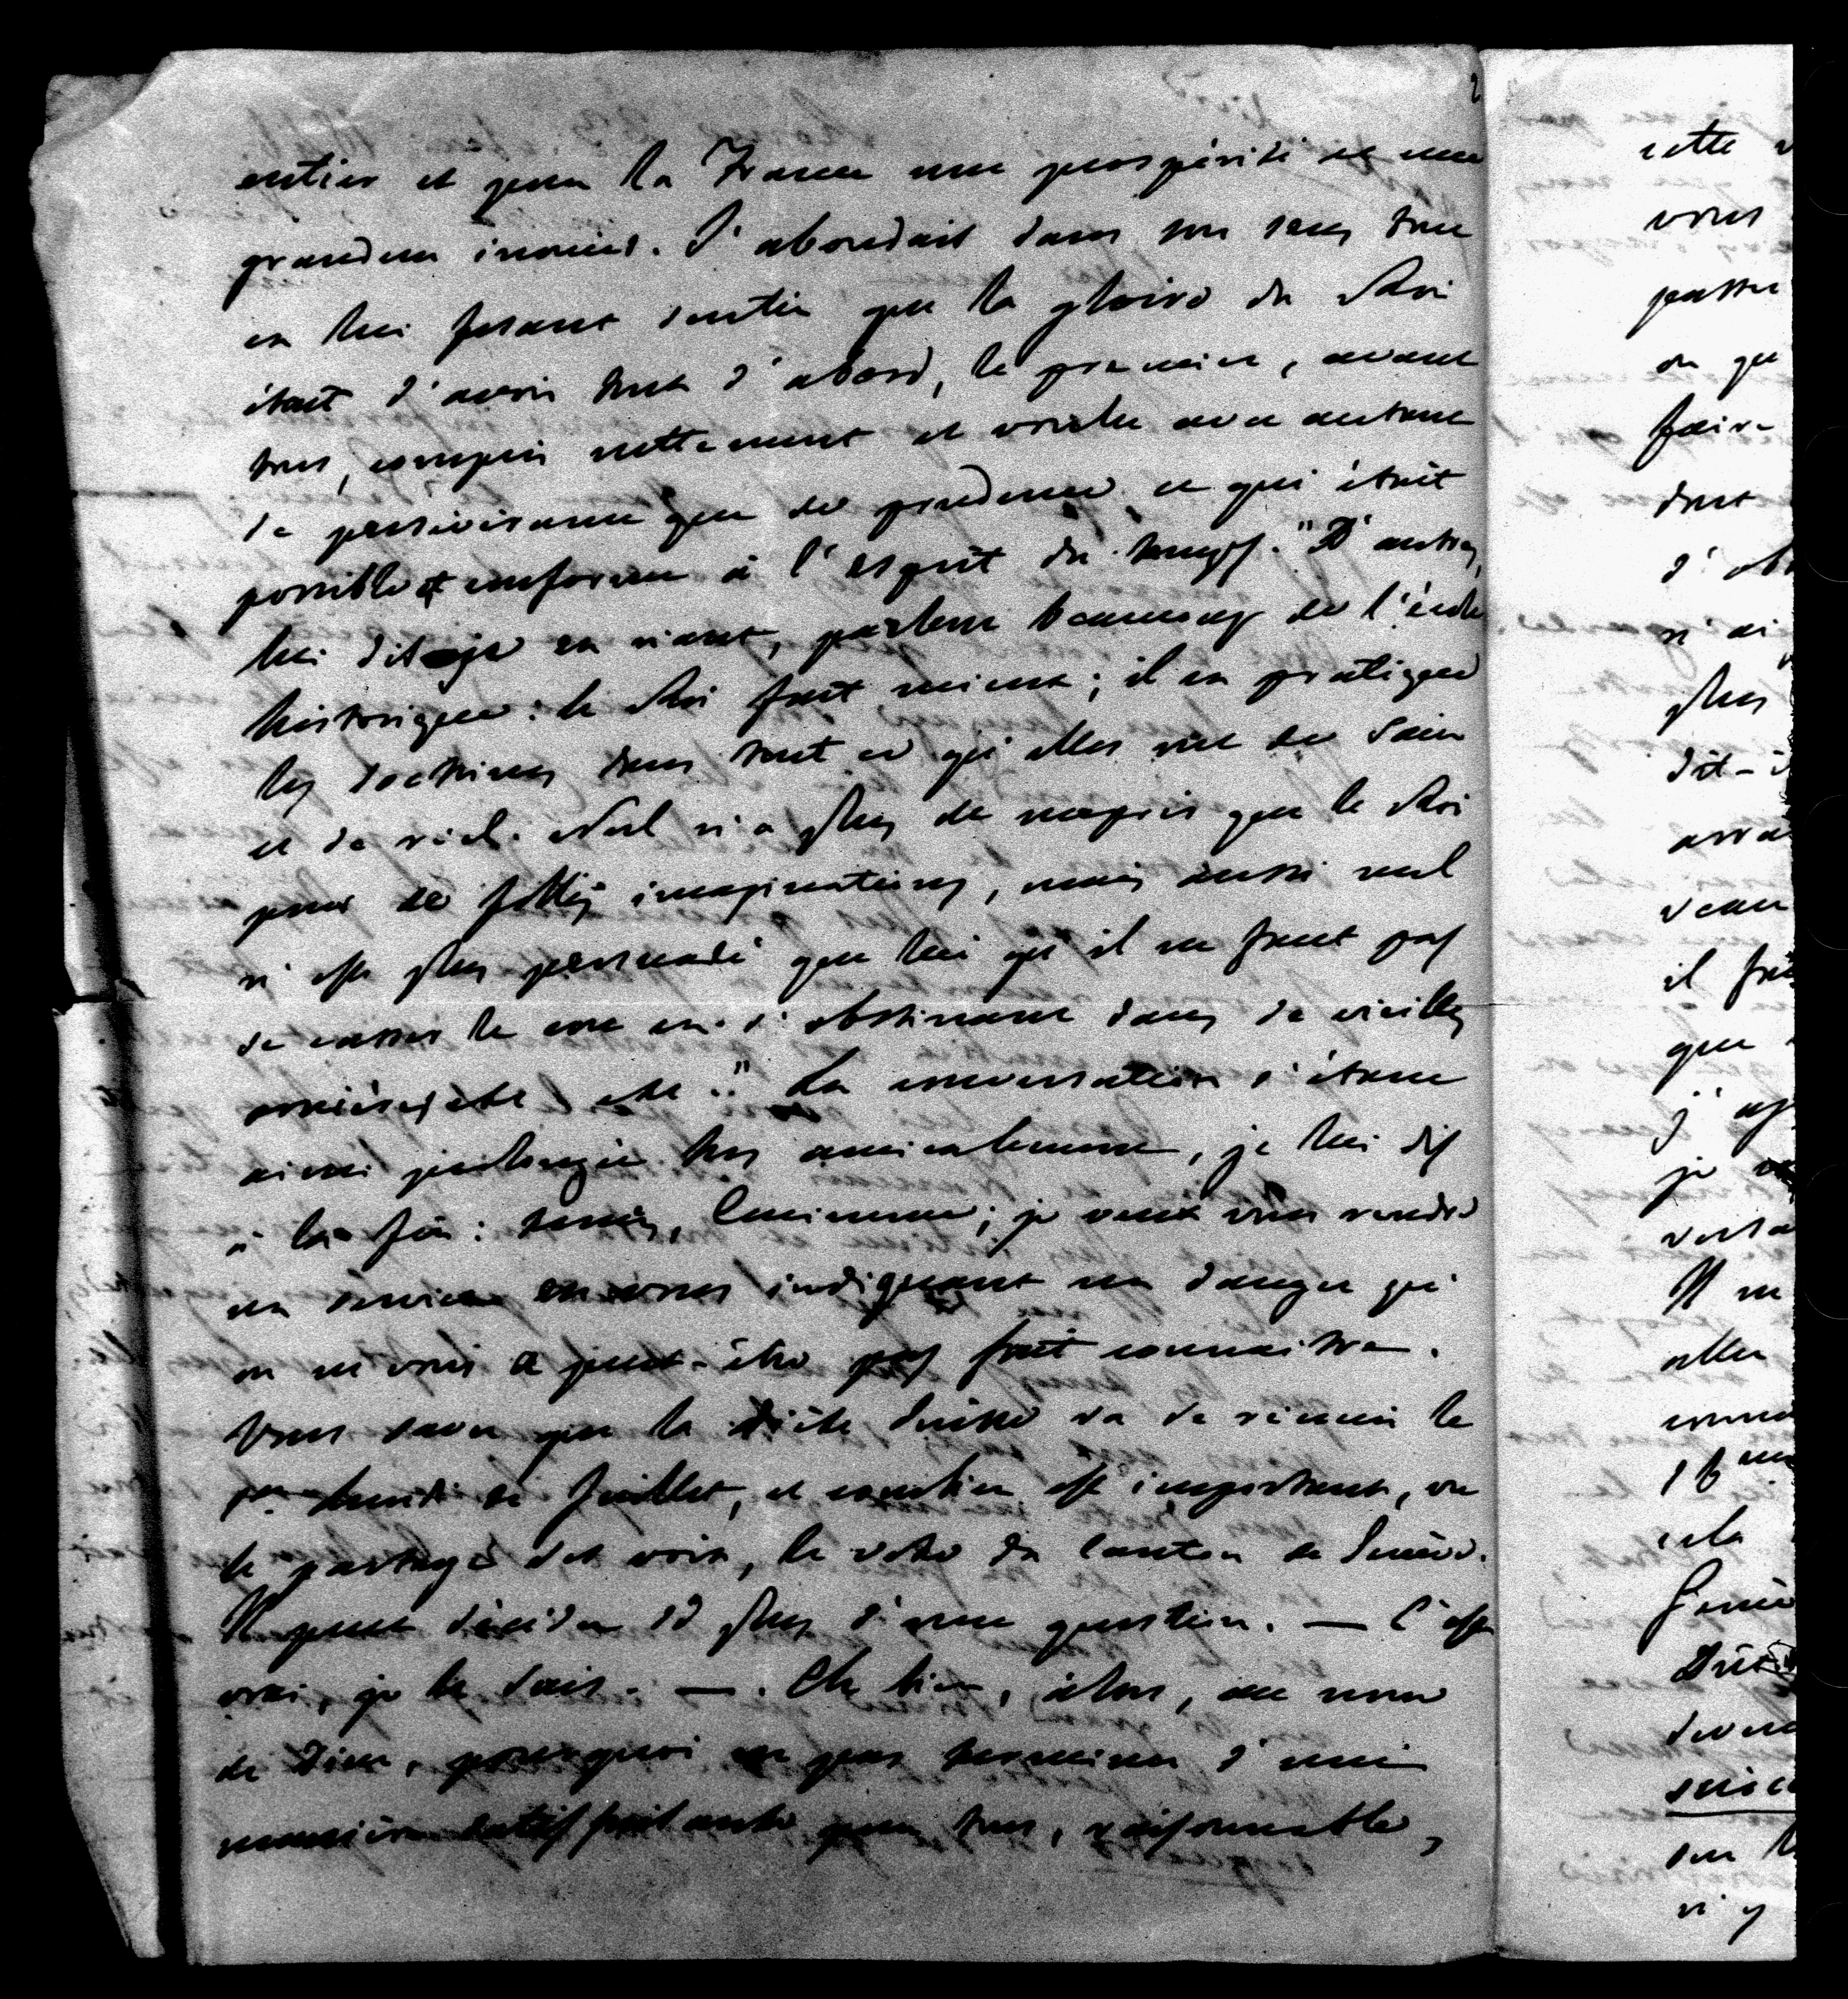 2
entier et pour la France une prospérité et une
grandeur inouies. J'abondais dans son sens tout
en lui fesant sentir que la gloire du Roi
était d'avoir tout d'abord, le premier, avant
tous, compris nettement et voulu avec autant
de persévérance que de prudence ce qui était
possible et conforme à l'esprit du temps. "D'autres,
lui dis-je en riant, parlent beaucoup de l'école
historique: le Roi fait mieux; il en pratique
les doctrines dans tout ce qu'elles ont de sain
et de réel. Nul n'a plus de mépris que le Roi
pour de folles imaginations, mais aussi nul
n'est plus persuadé que lui qu'il ne faut pas
se casser le cou en s'obstinant dans de vieilles
ornières etc etc." La conversation s'étant
ainsi prolongée très amicalement, je lui dis
à la fin: tenez, Eminence; je veux vous rendre
un service en vous indiquant un danger qu'
on ne vous a peut-être pas fait connaitre.
Vous savez que la diète Suisse va se réunir le
1er lundi de Juillet, et combien est important, vu
le partage des voix, le vote du Canton de Genève.
Il peut décider de plus d'une question. — C'est
vrai, je le sais. — . Eh bien, alors, au nom
de Dieu, pourquoi ne pas terminer d'une
manière satisfaisante pour tous, raisonnable,
cette
vous
passer
ou que
faire
dont
d'ob
n'ai
plus
dit-i
arra
veau
il fa
que
j'ap
je
versa
Il ne
aller
conn
cela
Genè
Diè
deven
suisse
sur l
n'y